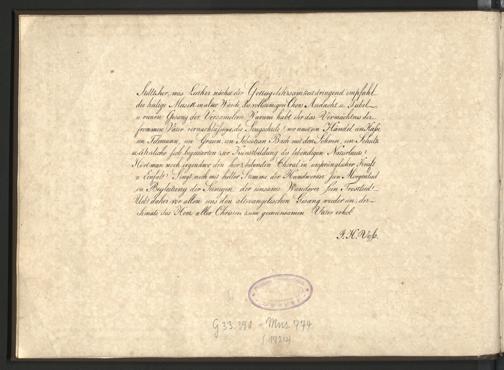 Stellt her, was Luther nächst der Gottesgelehrsamkeit dringend empfahl,
die heilige Musik in alter Würde, des vollstimmigen Chors Andacht u. Jubel
u. reinen Gesang der Versammelten. Warum habt ihr das Vermächtnis der
frommen Väter vernachlässigt, die Singschule? wo ein Händel, ein Hasse,
ein Telemann, ein Graun, ein Sebastian Bach mit den Söhnen, ein Schultz
sich begeisterten zur Kunstbildung des lebendigen Naturlauts?
Hört man noch irgendwo den herzhebenden Choral in ursprünglicher Kraft
u. Einfalt? Singt noch mit heller Stimme der Handwerker sein Morgenlied
in Begleitung der Seinigen, der einsame Wanderer sein Trostlied?
Uebt daher vor allem uns den altevangelischen Gesang wieder ein, der
einst das Herz aller Christen zum gemeinsamen Vater erhob.
J. H. Voß.
G 33.390 - Mus. 774
(1924)